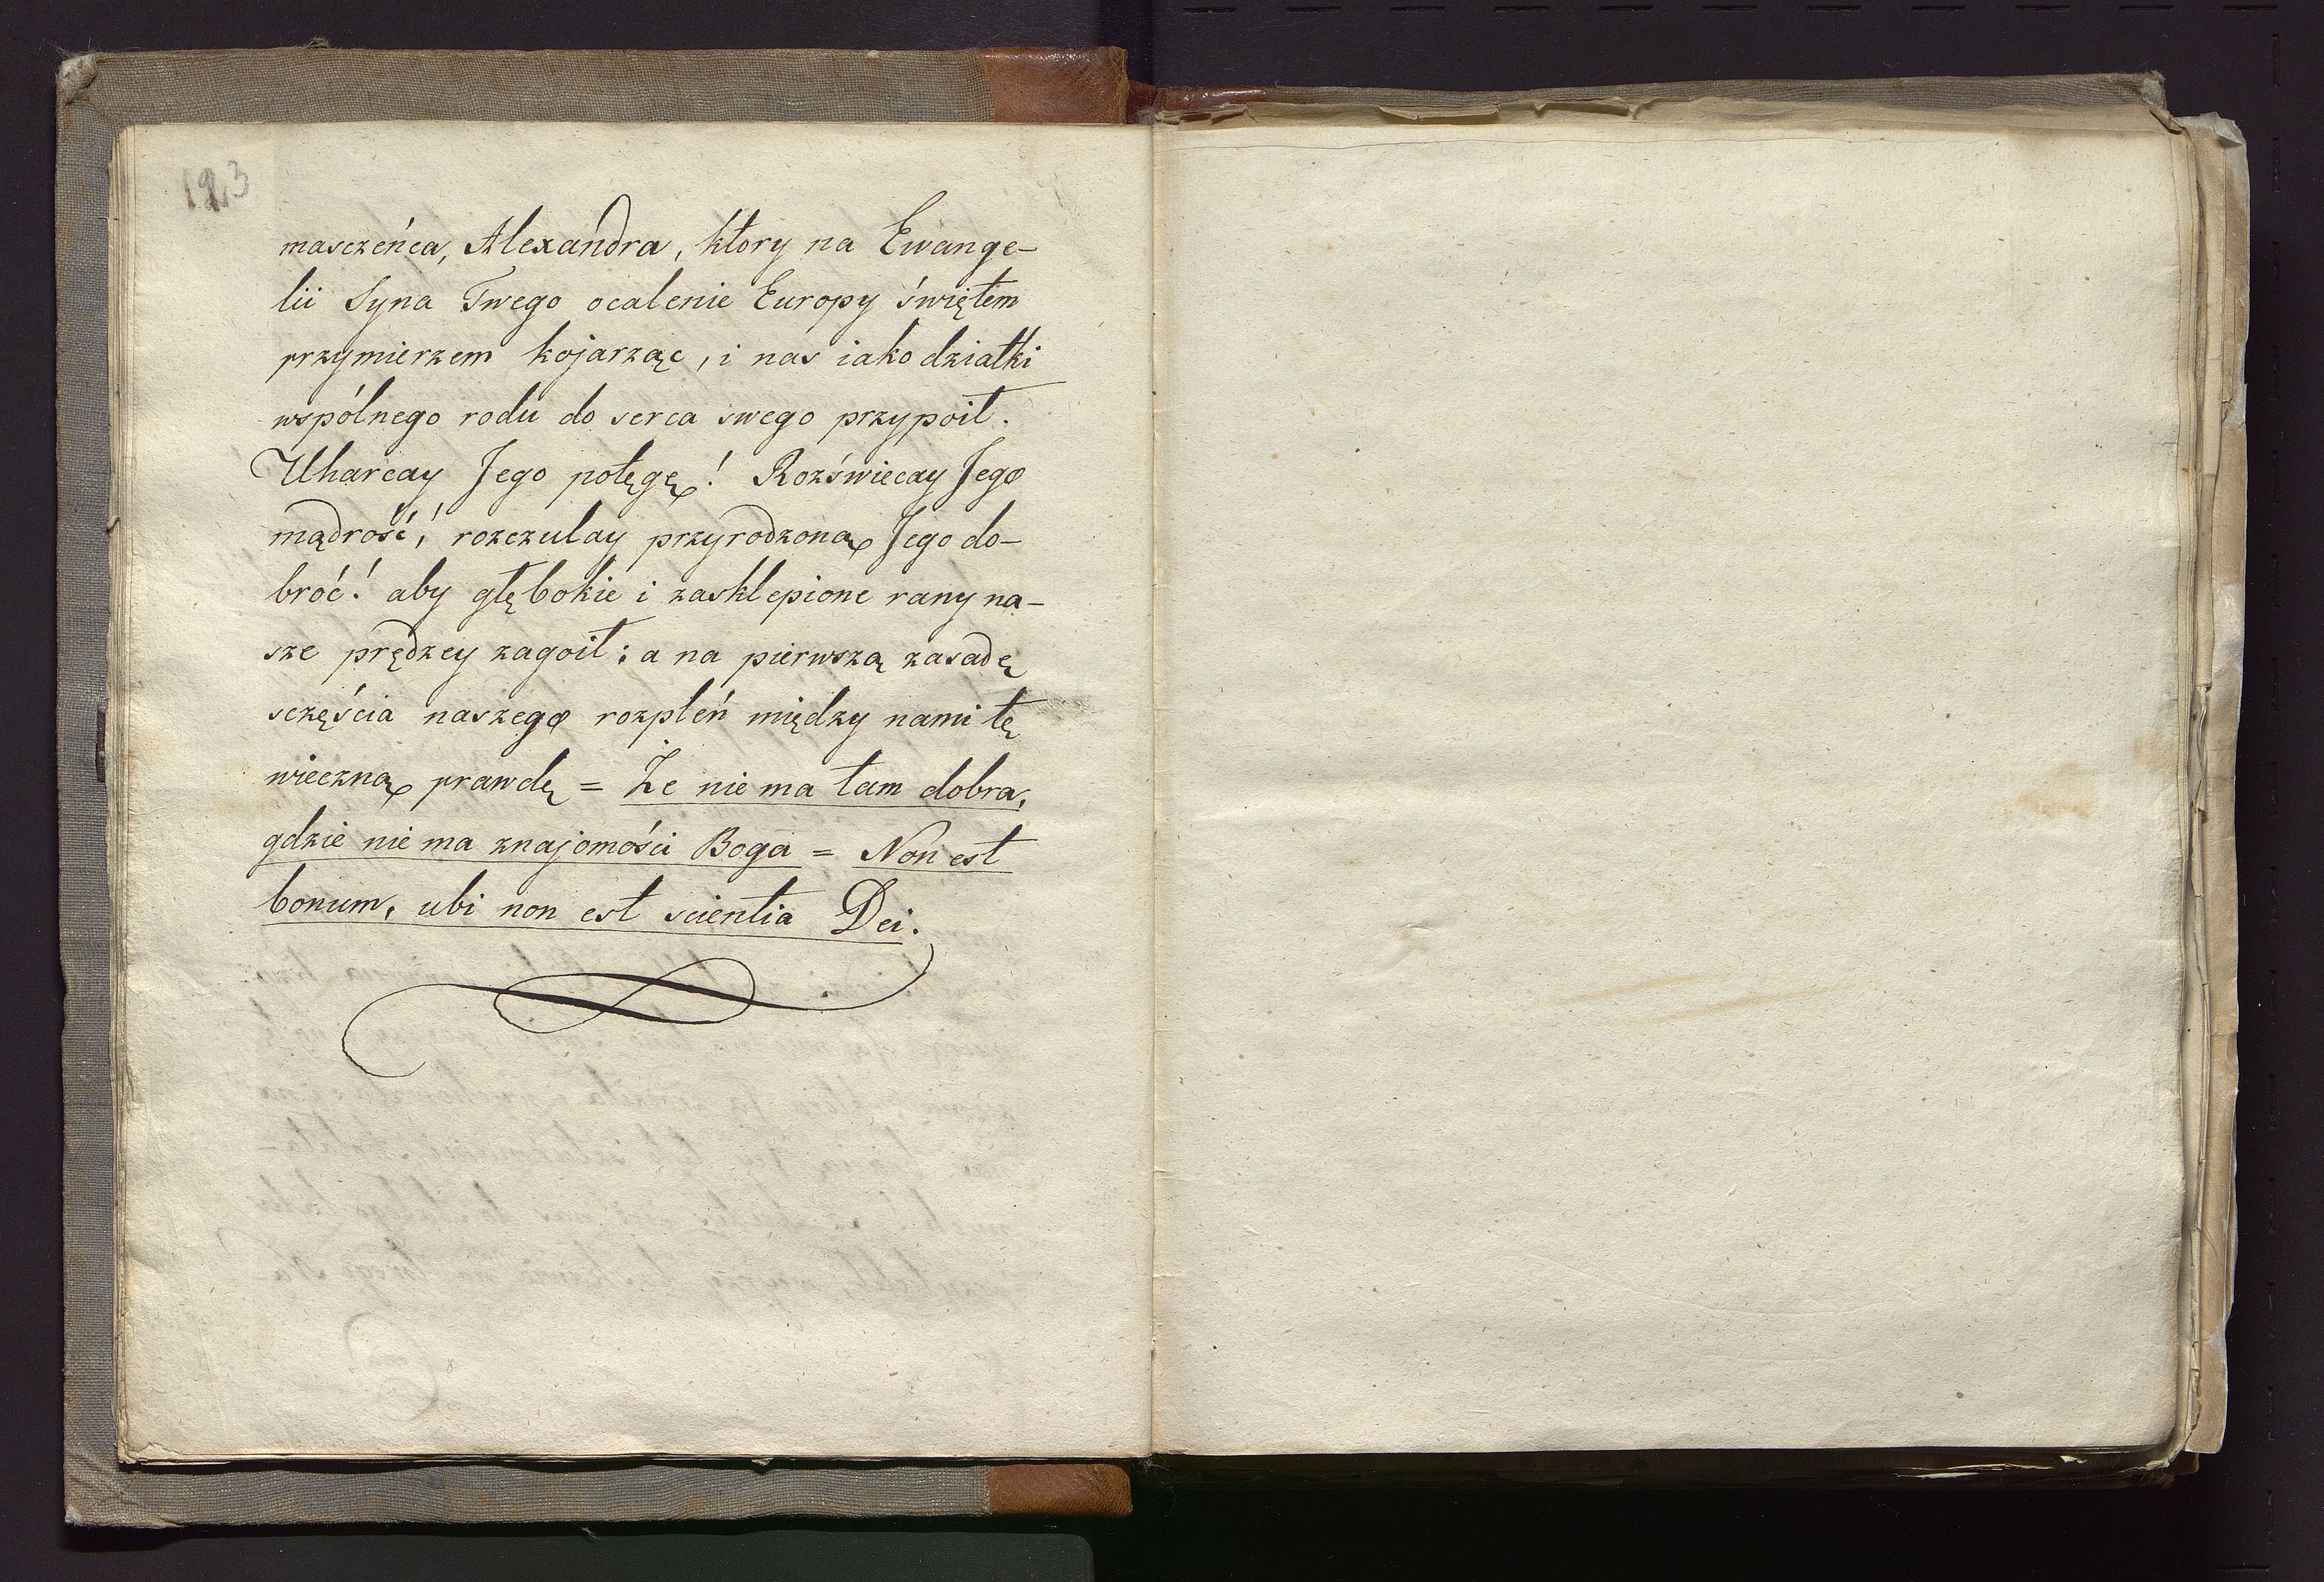 123
masczeńca, Alexandra, który na Ewange-
lii Syna Twego ocalenie Europy świętem
przymierzem kojarząc, i nas iako dziatki
wspólnego rodu do serca swego przypoił.
Uharcay Jego potęgę! Rozświecay Jego
mądrość,! rozczulay przyrodzoną Jego do-
broć! aby głębokie i zasklepione rany na-
sze prędzey zagoił; a na pierwszą zasadę
sczęścia naszego rozpleń między nami tę
wieczną prawdę = Że nie ma tam dobra,
gdzie nie ma znajomości Boga = Non est
bonum, ubi non est scientia Dei.